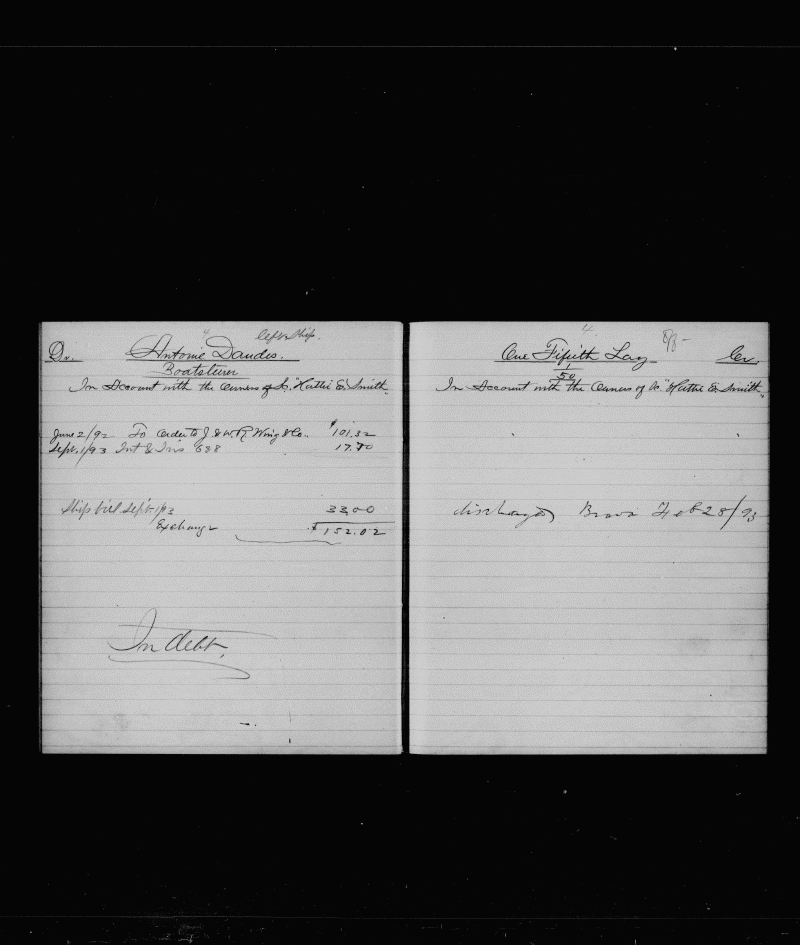 4 left Ship.
Dr. Antoine Dandes.
Boatsteerer
In Account with the Owners of Sc. "Hattie E. Smith"
June 2/92 To Order to J. & W. R. Wing & Co. $101.32
Sept. 1/93 Int & Ins 17.70
Ship bill Sept 1/93 33.00
Exchange $152.02
In debt.
4
One Fiftieth Lay Cr.
1/50
In Account with the Owners of Sc. "Hattie E. Smith"
discharged Brava Feb 28/93